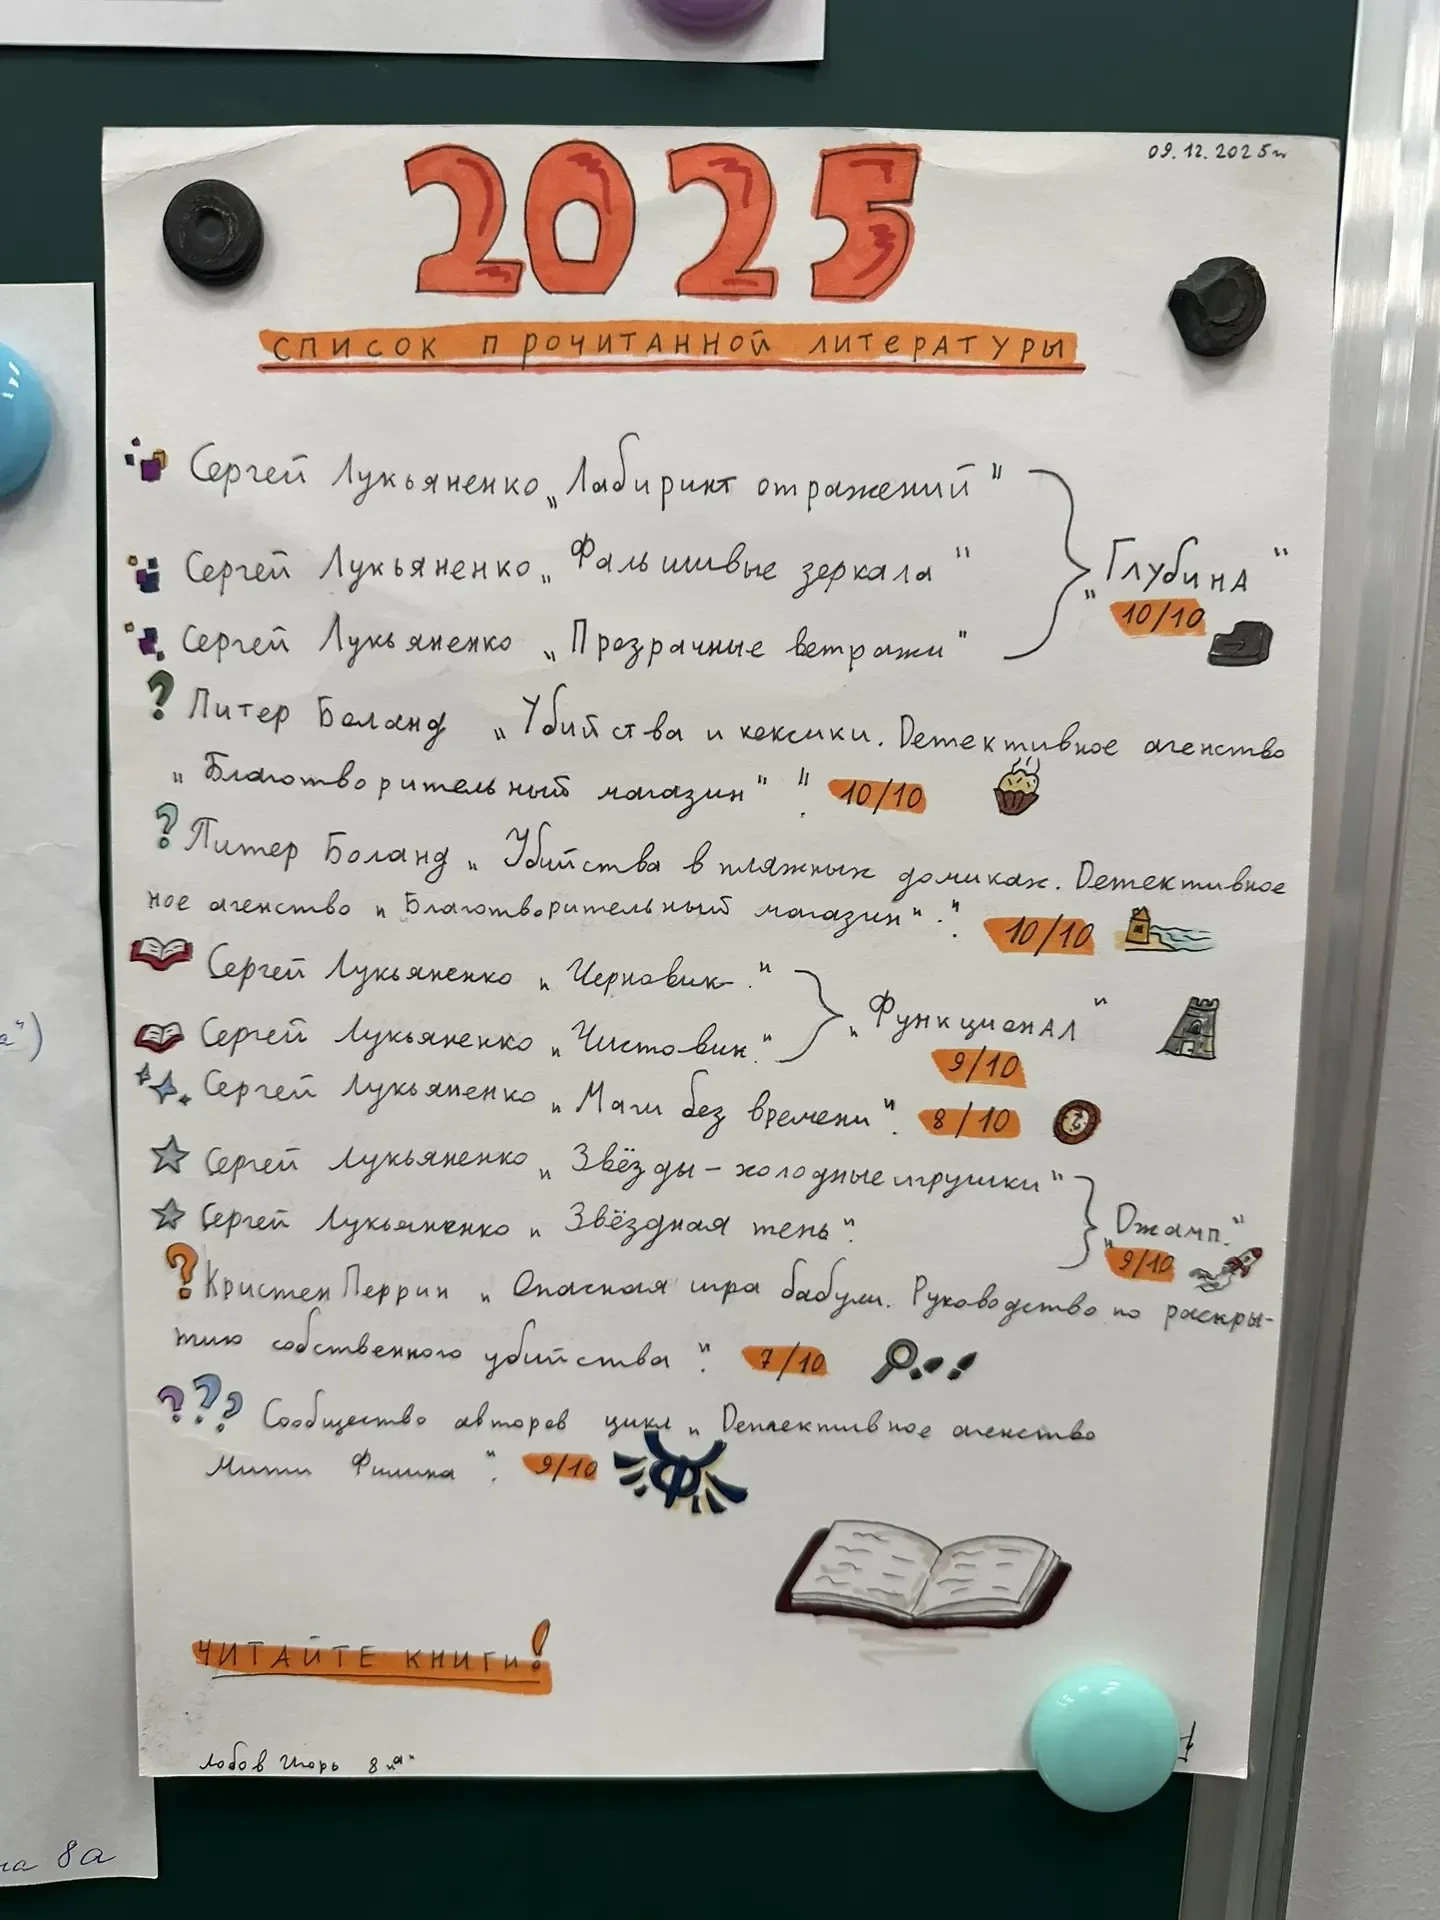 09.12.2025г
2025
СПИСОК ПРОЧИТАННОЙ ЛИТЕРАТУРЫ
Сергей Лукьяненко „Лабиринт отражений"
Сергей Лукьяненко „Фальшивые зеркала"
„Глубина"
10/10
Сергей Лукьяненко „Прозрачные ветражи"
? Питер Боланд „Убийства и кексики. Детективное агенство
„Благотворительный магазин" ". 10/10
? Питер Боланд „Убийства в пляжных домиках. Детективное
ное агенство „Благотворительный магазин" ". 10/10
Сергей Лукьяненко „Черновик."
„Функционал"
Сергей Лукьяненко „Чистовик."
9/10
Сергей Лукьяненко „Маги без времени". 8/10
Сергей Лукьяненко „Звёзды – холодные игрушки"
Сергей Лукьяненко „Звёздная тень".
„Джамп."
9/10
? Кристен Перрин „Опасная игра бабули. Руководство по раскры-
тию собственного убийства". 7/10
??? Сообщество авторов цикл „Детективное агенство
Мити Филина". 9/10
Ф
ЧИТАЙТЕ КНИГИ!
Лобов Игорь 8 „а"
а")
8а